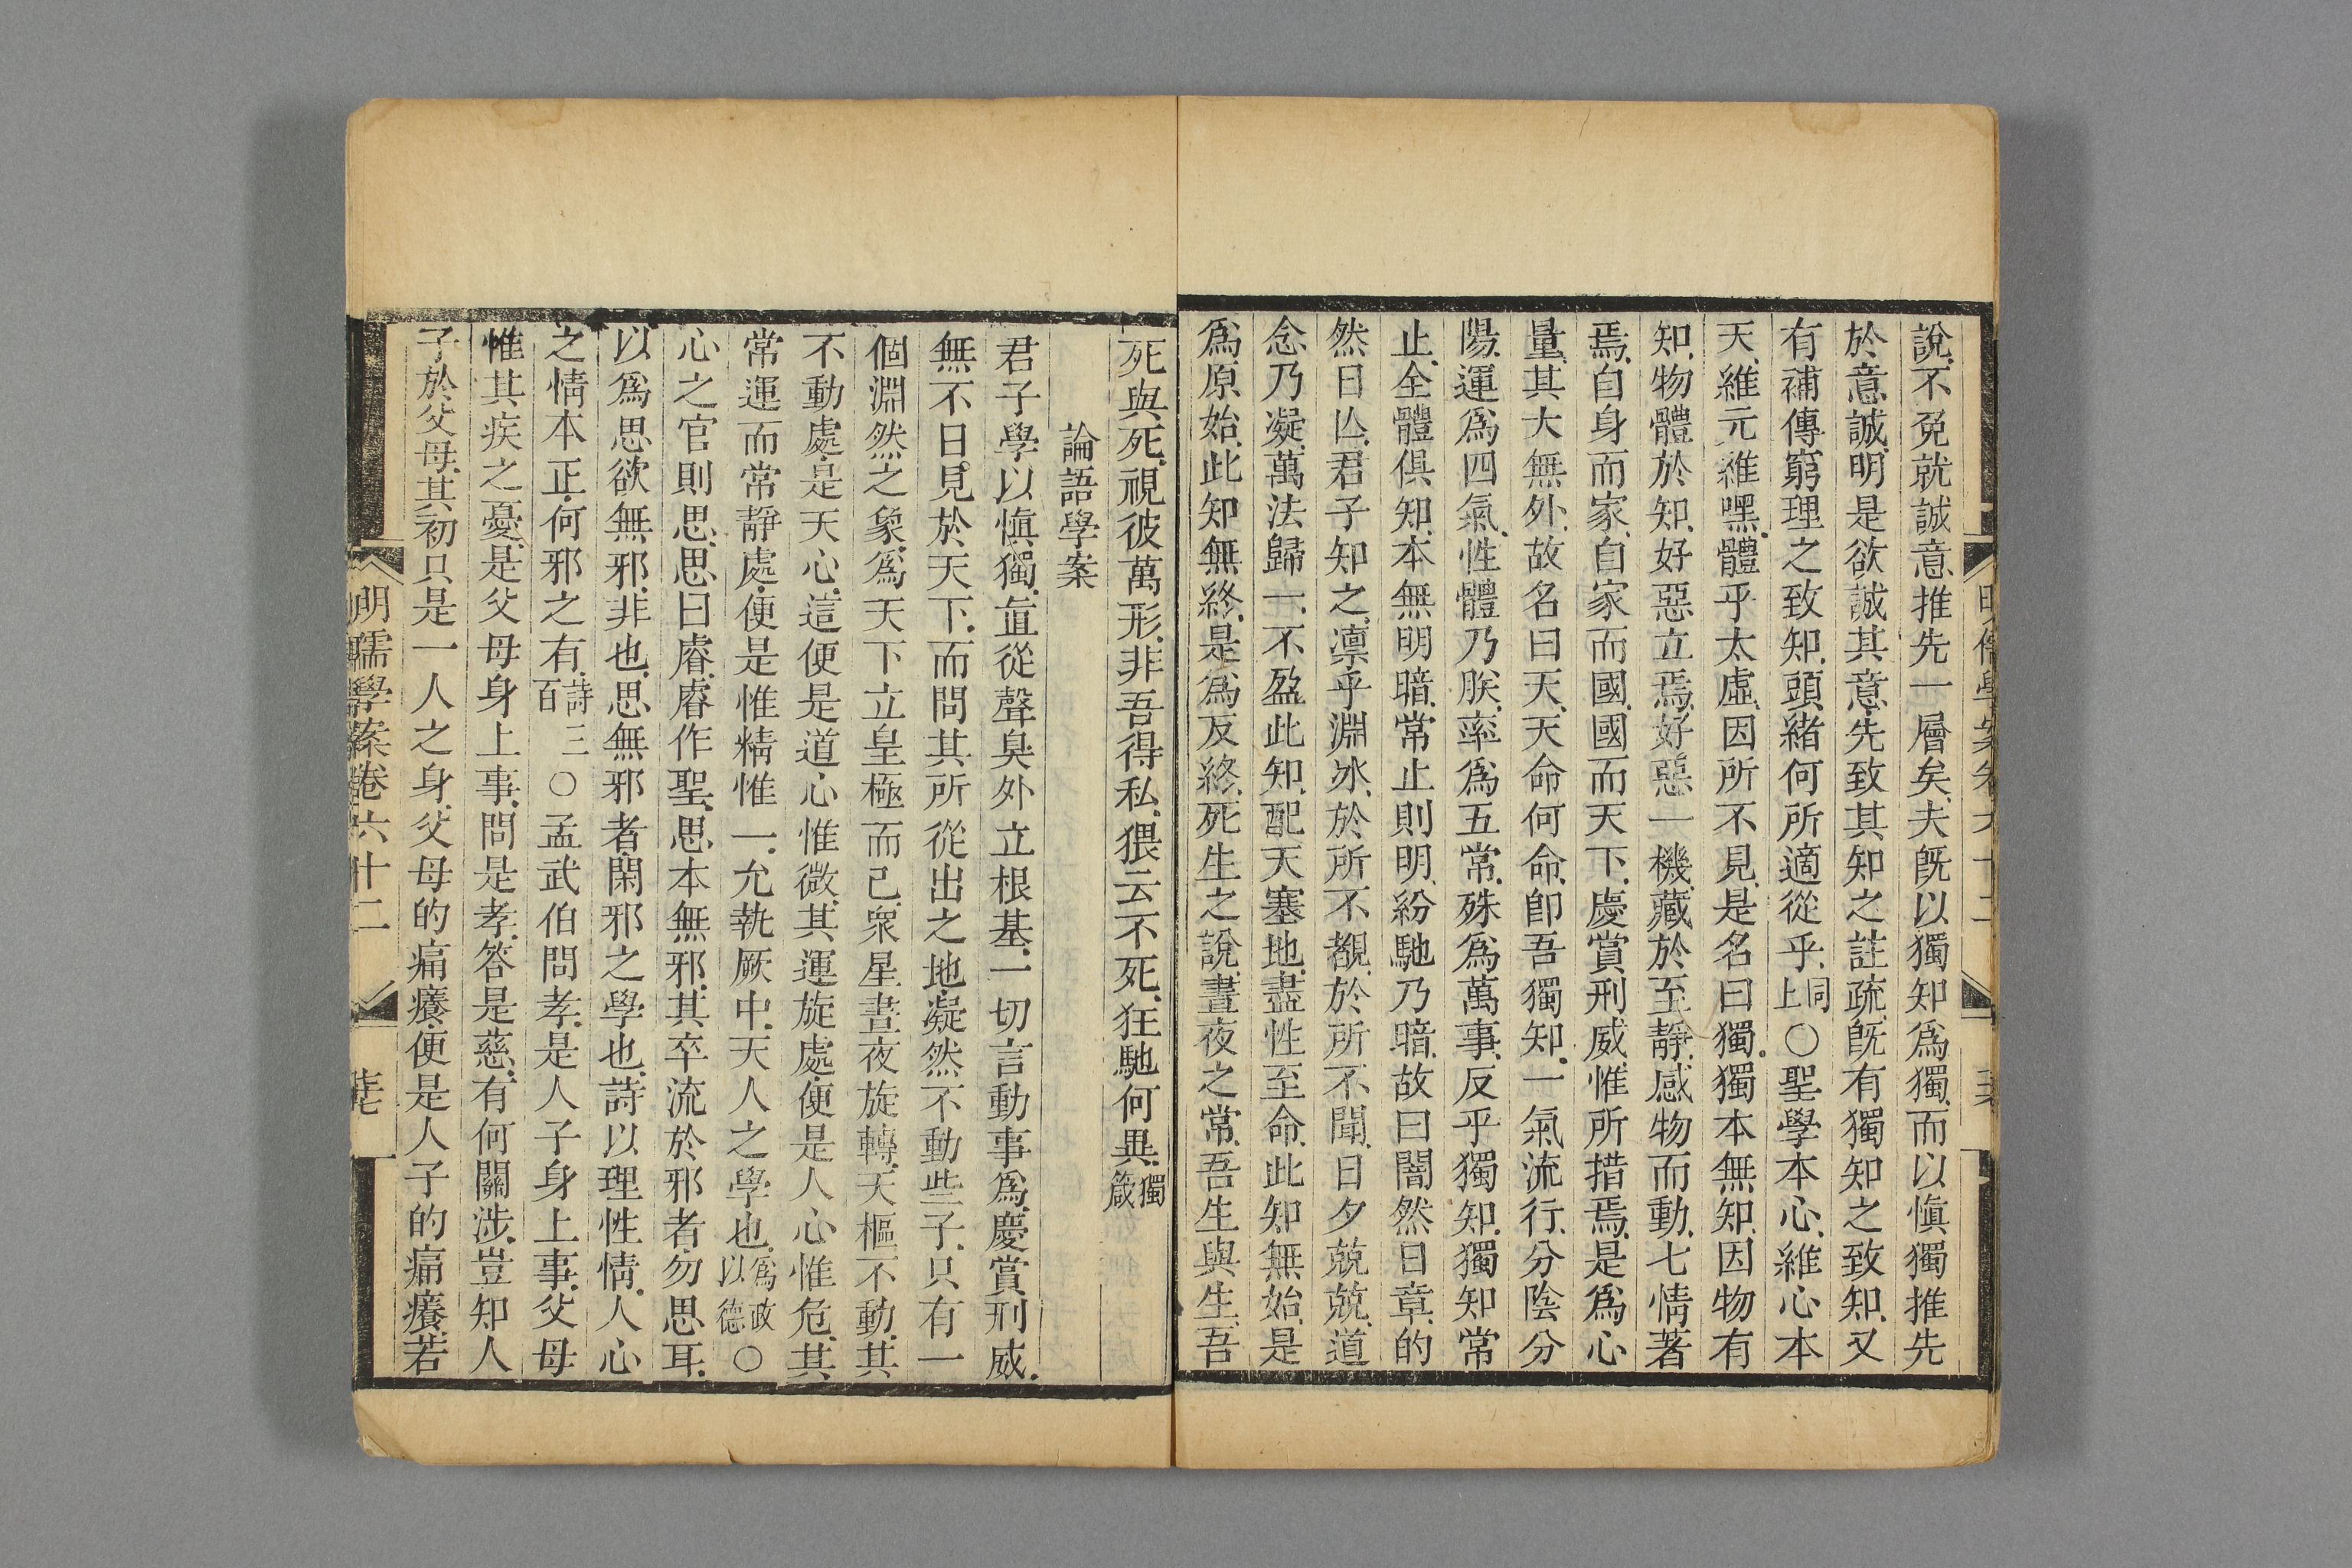 說不免就誠意推先一層矣夫旣以獨知爲獨而以愼獨推先
於意誠明是欲誠其意先致其知之註疏旣有獨知之致知又
有補傳窮理之致知頭緒何所適從乎同上○聖學本心維心本
天維元維嘿體乎太虛因所不見是名曰獨獨本無知因物有
知物體於知好惡立焉好惡一機藏於至靜感物而動七情著
焉自身而家自家而國國而天下慶賞刑威惟所措焉是爲心
量其大無外故名曰天天命何命卽吾獨知一氣流行分陰分
陽運爲四氣性體乃朕率爲五常殊爲萬事反乎獨知獨知常
止全體俱知本無明暗常止則明紛馳乃暗故曰闇然日章的
然日亾君子知之凛乎淵冰於所不覩於所不聞日夕兢兢道
念乃凝萬法歸一不盈此知配天塞地盡性至命此知無始是
爲原始此知無終是爲反終死生之說晝夜之常吾生與生吾
死與死視彼萬形非吾得私猥云不死狂馳何異獨箴
論語學案
君子學以愼獨直從聲臭外立根基一切言動事爲慶賞刑威
無不日見於天下而問其所從出之地凝然不動些子只有一
個淵然之象爲天下立皇極而已衆星晝夜旋轉天樞不動其
不動處是天心這便是道心惟微其運旋處便是人心惟危其
常運而常靜處便是惟精惟一允執厥中天人之學也爲政以德○
心之官則思思曰睿睿作聖思本無邪其卒流於邪者勿思耳
以爲思欲無邪非也思無邪者閑邪之學也詩以理性情人心
之情本正何邪之有詩三百○孟武伯問孝是人子身上事父母
惟其疾之憂是父母身上事問是孝答是慈有何關涉豈知人
子於父母其初只是一人之身父母的痛癢便是人子的痛癢若
明儒學案卷六十二